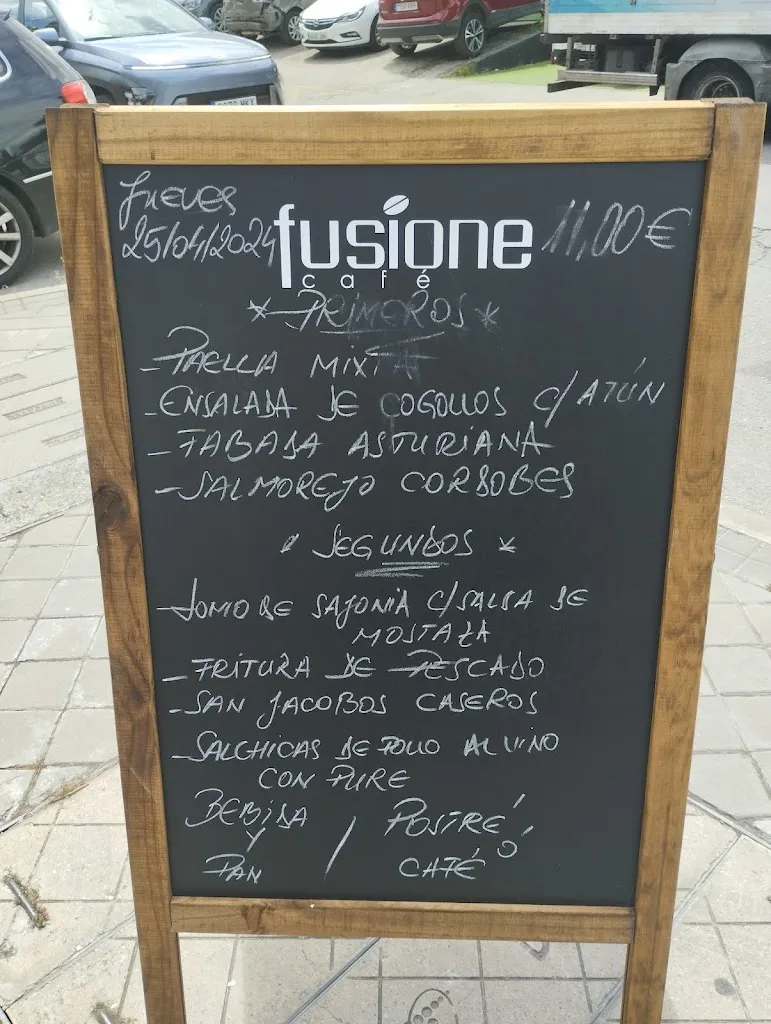 Jueves
25/04/2024
fusione
café
11,00€
* PRIMEROS *
- PAELLA MIXTA
- ENSALADA DE COGOLLOS C/ATÚN
- FABADA ASTURIANA
- SALMOREJO CORDOBES
* SEGUNDOS *
- LOMO DE SAJONIA C/SALSA DE
MOSTAZA
- FRITURA DE PESCADO
- SAN JACOBOS CASEROS
- SALCHICAS DE POLLO AL VINO
CON PURE
BEBIDA
Y
PAN
/
POSTRE
Ó
CAFÉ